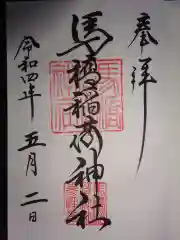 奉拝
馬橋稲荷神社
令和四年
五月二日